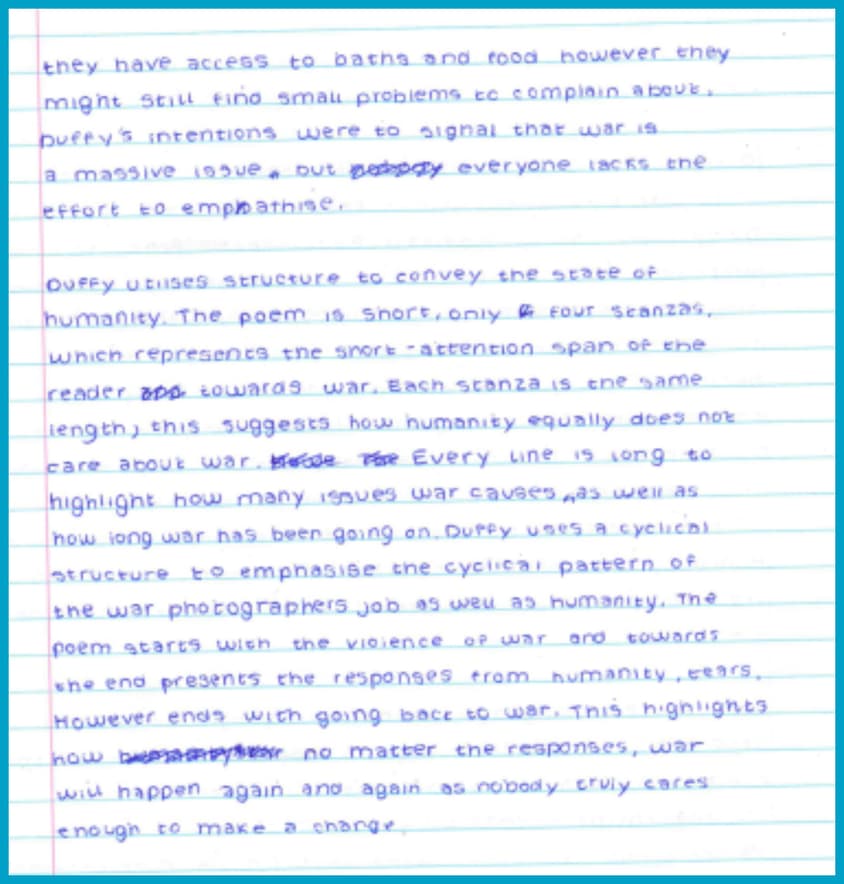 they have access to baths and food however they
might still find small problems to complain about.
Duffy's intentions were to signal that war is
a massive issue, but everyone lacks the
effort to empathise.
Duffy utilises structure to convey the state of
humanity. The poem is short, only four stanzas,
which represents the short-attention span of the
reader towards war. Each stanza is the same
length, this suggests how humanity equally does not
care about war. Every line is long to
highlight how many issues war causes, as well as
how long war has been going on. Duffy uses a cyclical
structure to emphasise the cyclical pattern of
the war photographers job as well as humanity. The
poem starts with the violence of war and towards
the end presents the responses from humanity, tears.
However ends with going back to war. This highlights
how no matter the responses, war
will happen again and again as nobody truly cares
enough to make a change.